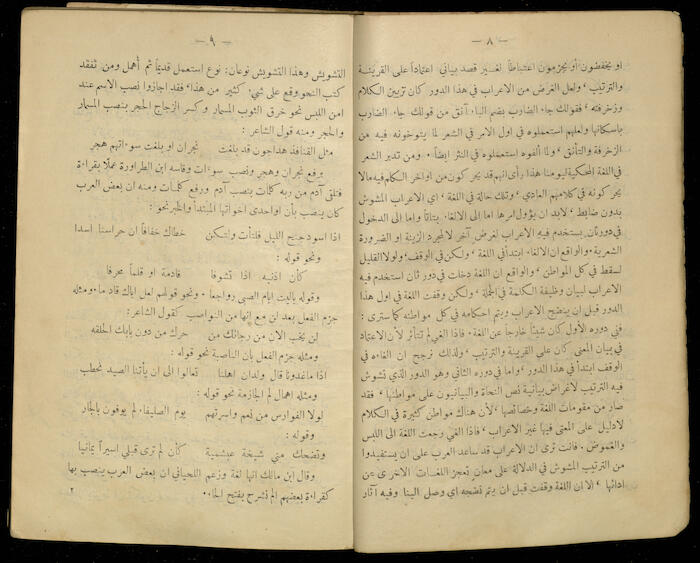 — ٨ —
او يخفضون أو يجزمون اعتباطاً لغير قصد بياني اعتماداً على القرينة
والترتيب ، ولعل الغرض من الاعراب في هذا الدور كان تزيين الكلام
وزخرفته ، فقولك جاء الضارب بضم الباء آنق من قولك جاء الضارب
باسكانها ولعلهم استعملوه في اول الامر في الشعر لما يتوخونه فيه من
الزخرفة والتأنق ، ولما ألفوه استعملوه في النثر ايضاً . ومن تدبر الشعر
في اللغة المحكية ليومنا هذا رأى انهم قد يحركون من اواخر الكلم فيه مالا
يحركونه في كلامهم العادي ، وتلك حالة في اللغة ، اي الاعراب المشوش
بدون ضابط ، لابد ان يؤول امرها اما الى الالغاء بتاتاً واما الى الدخول
في دور ثان يستخدم فيه الاعراب لغرض آخر لا لمجرد الزينة او الضرورة
الشعرية . والواقع ان الالغاء ابتدأ في اللغة ، ولكن في الوقف ، ولولا القليل
لسقط في كل المواطن ، والواقع ان اللغة دخلت في دور ثان استخدم فيه
الاعراب لبيان وظيفة الكلمة في الجملة ، ولكن وقفت اللغة في اول هذا
الدور قبل ان ينضج الاعراب ويتم احكامه في كل مواطنه كما سترى :
ففي دوره الأول كان شيئاً خارجاً عن اللغة . فاذا الغي لم تتأثر لأن الاعتماد
في بيان المعنى كان على القرينة والترتيب ، ولذلك نرجح ان الغاءه في
الوقف ابتدأ في هذا الدور ، واما في دوره الثاني وهو الدور الذي تشوش
فيه الترتيب لاغراض بيانية نص النحاة والبيانيون على مواطنها ، فقد
صار من مقومات اللغة وخصائصها ، لأن هناك مواطن كثيرة في الكلام
لادليل على المعنى فيها غير الاعراب ، فاذا الغي رجعت اللغة الى اللبس
والغموض . فانت ترى ان الاعراب قد ساعد العرب على ان يستفيدوا
من الترتيب المشوش في الدلالة على معان تعجز اللغات الاخرى عن
ادائها ، الا ان اللغة وقفت قبل ان يتم نضجه اي وصل الينا وفيه آثار
— ٩ —
التشويش وهذا التشويش نوعان : نوع استعمل قديماً ثم أهمل ومن تفقد
كتب النحو وقع على شيء كثير من هذا ، فقد اجازوا نصب الاسم عند
امن اللبس نحو خرق الثوب المسمار وكسر الزجاج الحجر بنصب المسمار
والحجر ومنه قول الشاعر :
مثل القنافذ هداجون قد بلغت نجران او بلغت سوءاتهم هجر
برفع نجران وهجر ونصب سوءات وقاسه ابن الطراورة عملاً بقراءة
فتلق آدم من ربه كلمات بنصب آدم ورفع كلمات ومنه ان بعض العرب
كان ينصب بأن او احدى اخواتها المبتدأ والخبر نحو :
اذا اسود جنح الليل فلتأت ولتكن خطاك خفافاً ان حراسنا اسدا
ونحو قوله :
كأن أذنيه اذا تشوفا قادمة او قلماً محرفا
وقوله ياليت ايام الصبى رواجعا . ونحو قولهم لعل اباك قادما . ومثله
جزم الفعل بعد لن مع إنها من النواصب كقول الشاعر :
لن يخب الان من رجائك من حرك من دون بابك الحلقه
ومثله جزم الفعل بأن الناصبة نحو قوله :
اذا ماغدونا قال ولدان اهلنا تعالوا الى ان يأتنا الصيد نحطب
ومثله اهمال لم الجازمة نحو قوله :
لولا الفوارس من نعم واسرتهم يوم الصليفاء لم يوفون بالجار
وقوله :
وتضحك مني شيخة عبشمية كأن لم ترى قبلي اسيراً يمانيا
وقال ابن مالك انها لغة وزعم اللحياني ان بعض العرب ينصب بها
كقراءة بعضهم الم نشرح بفتح الحاء .
٢